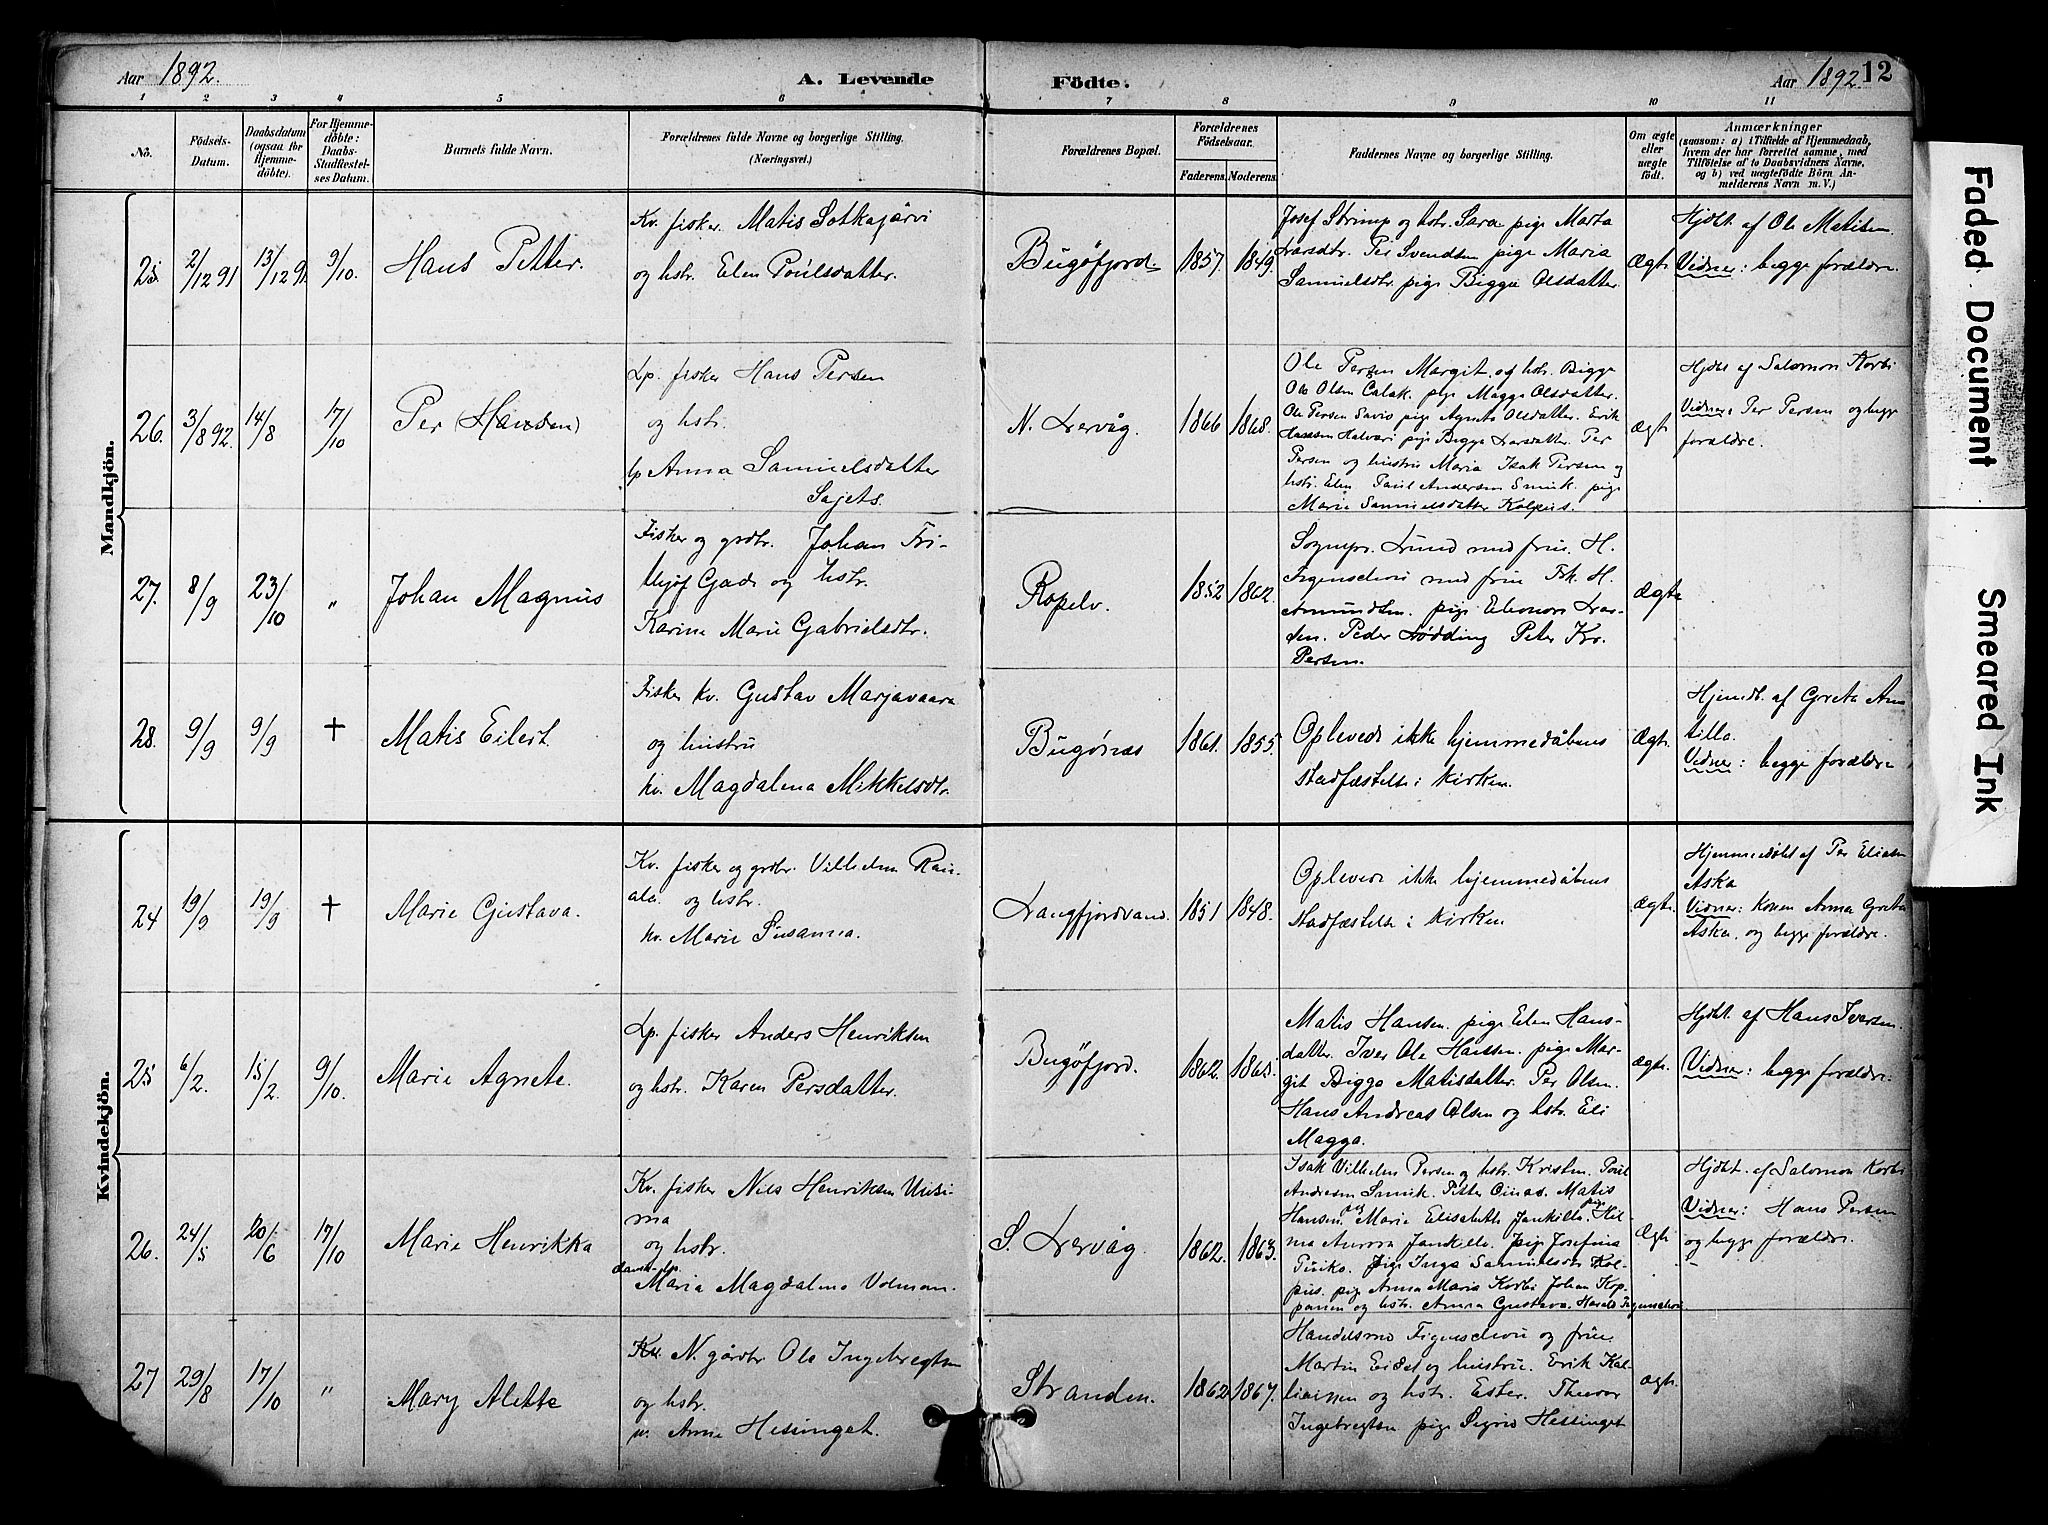 Aar 1892.
A. Levende
Födte.
Aar 1892
12
1 2 3 4 5 6 7 8 9 10 11
No.
Födsels-
Datum.
Daabsdatum
(ogsaa for
Hjemme-
döbte).
For Hjemme-
döbte:
Daabs-
Stadfæstel-
ses Datum.
Barnets fulde Navn.
Forældrenes fulde Navne og borgerlige Stilling.
(Næringsvei.)
Forældrenes Bopæl.
Forældrenes
Födselsaar.
Faderens. Moderens.
Faddernes Navne og borgerlige Stilling.
Om ægte
eller
uægte
födt.
Anmærkninger
(saasom: a) i Tilfælde af Hjemmedaab,
hvem der har forrettet samme, med
Tilföielse af to Daabsvidners Navne,
og b) ved uægtefödte Börn An-
melderens Navn m. V.)
Mandkjön.
25. 2/12 91 13/12 91 9/10.
Hans Petter.
Kv. fisker. Matis Sotkajärvi
og hstr. Elen Poulsdatter.
Bugöfjord
1857. 1849.
Josef Strimp og hstr. Sara pige Marta
Larsdtr. Per Svendsen pige Maria
Samuelsdtr. pige Bigga Olsdatter.
Ægte
Hjdbt. af Ole Matisen.
Vidner: begge forældre.
26. 3/8 92. 14/8 17/10
Per (Hansen)
Lp. fisker Hans Persen
og hstr.
lp Anna Samuelsdatter
Sajets.
N. Lervåg.
1866 1868.
Ole Persen Margit og hstr. Bigge
Ole Olsen Calak. pige Magge Olsdatter.
Ole Persen Savis pige Agnete Olsdatter. Erik
Hansen Halvari pige Bigge Larsdatter. Per
Persen og hustru Maria Isak Persen og
hstr. Elen Paul Andersen Smuk. pige
Marie Samuelsdatter Kolpus.
ægte
Hjdbt af Salomon Korbi
Vidner: Per Persen og begge
forældre.
27. 8/9 23/10 "
Johan Magnus
Fisker og grdbr. Johan Fri-
thjof Gade og hstr.
Karine Marie Gabrielsdtr.
Ropelv.
1852 1862.
Sognepr. Lund med frue. H.
Figenschou med frue Frk. H.
Amundsen. pige Eleonore Lar-
sen. Peder Lødding Peter Kr.
Persen.
ægte
28. 9/9 9/9 +
Matis Eilert.
Fisker kv. Gustav Marjavaara
og hustru
kv. Magdalena Mikkelsdtr.
Bugönæs
1861. 1855.
Oplevede ikke hjemmedåbens
stadfæstelse i kirken.
Ægte.
Hjemdt. af Greta An
tilla.
Vidner: begge forældre
Kvindekjön.
24 19/9 19/9 +
Marie Gustava.
Kv. fisker og grdbr. Vilhelm Rai-
ala. og hstr.
kv. Marie Susanna.
Langfjordvand.
1851 1848.
Oplevede ikke hjemmedåbens
stadfæstelse i kirken
ægte.
Hjemmedøbt af Per Eliasen
Aska
Vidner: konen Anna Greta
Aska, og begge forældre.
25 6/2. 15/2. 9/10.
Marie Agnete.
Lp. fisker Anders Henriksen
og hstr. Karen Persdatter.
Bugöfjord.
1862. 1865.
Matis Hansen. pige Elen Hans-
datter. Iver Ole Hansen. pige Mar-
git Bigga Matisdatter. Per Olsen.
Hans Andreas Olsen og hstr. Eli
Magga.
ægte.
Hjdbt. af Hans Iversen.
Vidner: begge forældre.
26. 24/5 20/6 17/10
Marie Henrikka
Kv. fisker Nils Henriksen Uusi-
ma
og hstr.
Maria Magdalena Volman.
S. Lervåg
1862. 1863.
Isak Vilhelm Persen og hstr. Kristine. Poul
Andersen Smuk. Petter Matis
Hansen. pig Marie Elisabeth Jankilla. pige Hil-
ma Aurora Jankilla. pige Josefina
Puiko. pige Inga Samuelsdtr Kol-
pus. pige Anna Maria Korbi Johan Kop-
panen og hstr. Anna Gustava. Harald Figenschou
Ægte
Hjdbt. af Salomon Korbi
Vidner: Hans Persen
og begge forældre.
27 29/8 17/10 "
Mary Alette
N. gårdbr Ole Ingebregtsen
og hstr.
n. Anne Hesinget.
Stranden.
1862 1867.
Handelsmd Figenschou og frue.
Martin Eidet og hustru. Erik Kal-
liainen og hstr. Ester. Theodor
Ingebregtsen pige Sigrid Hessinget
ægte.
Faded Document
Smeared Ink